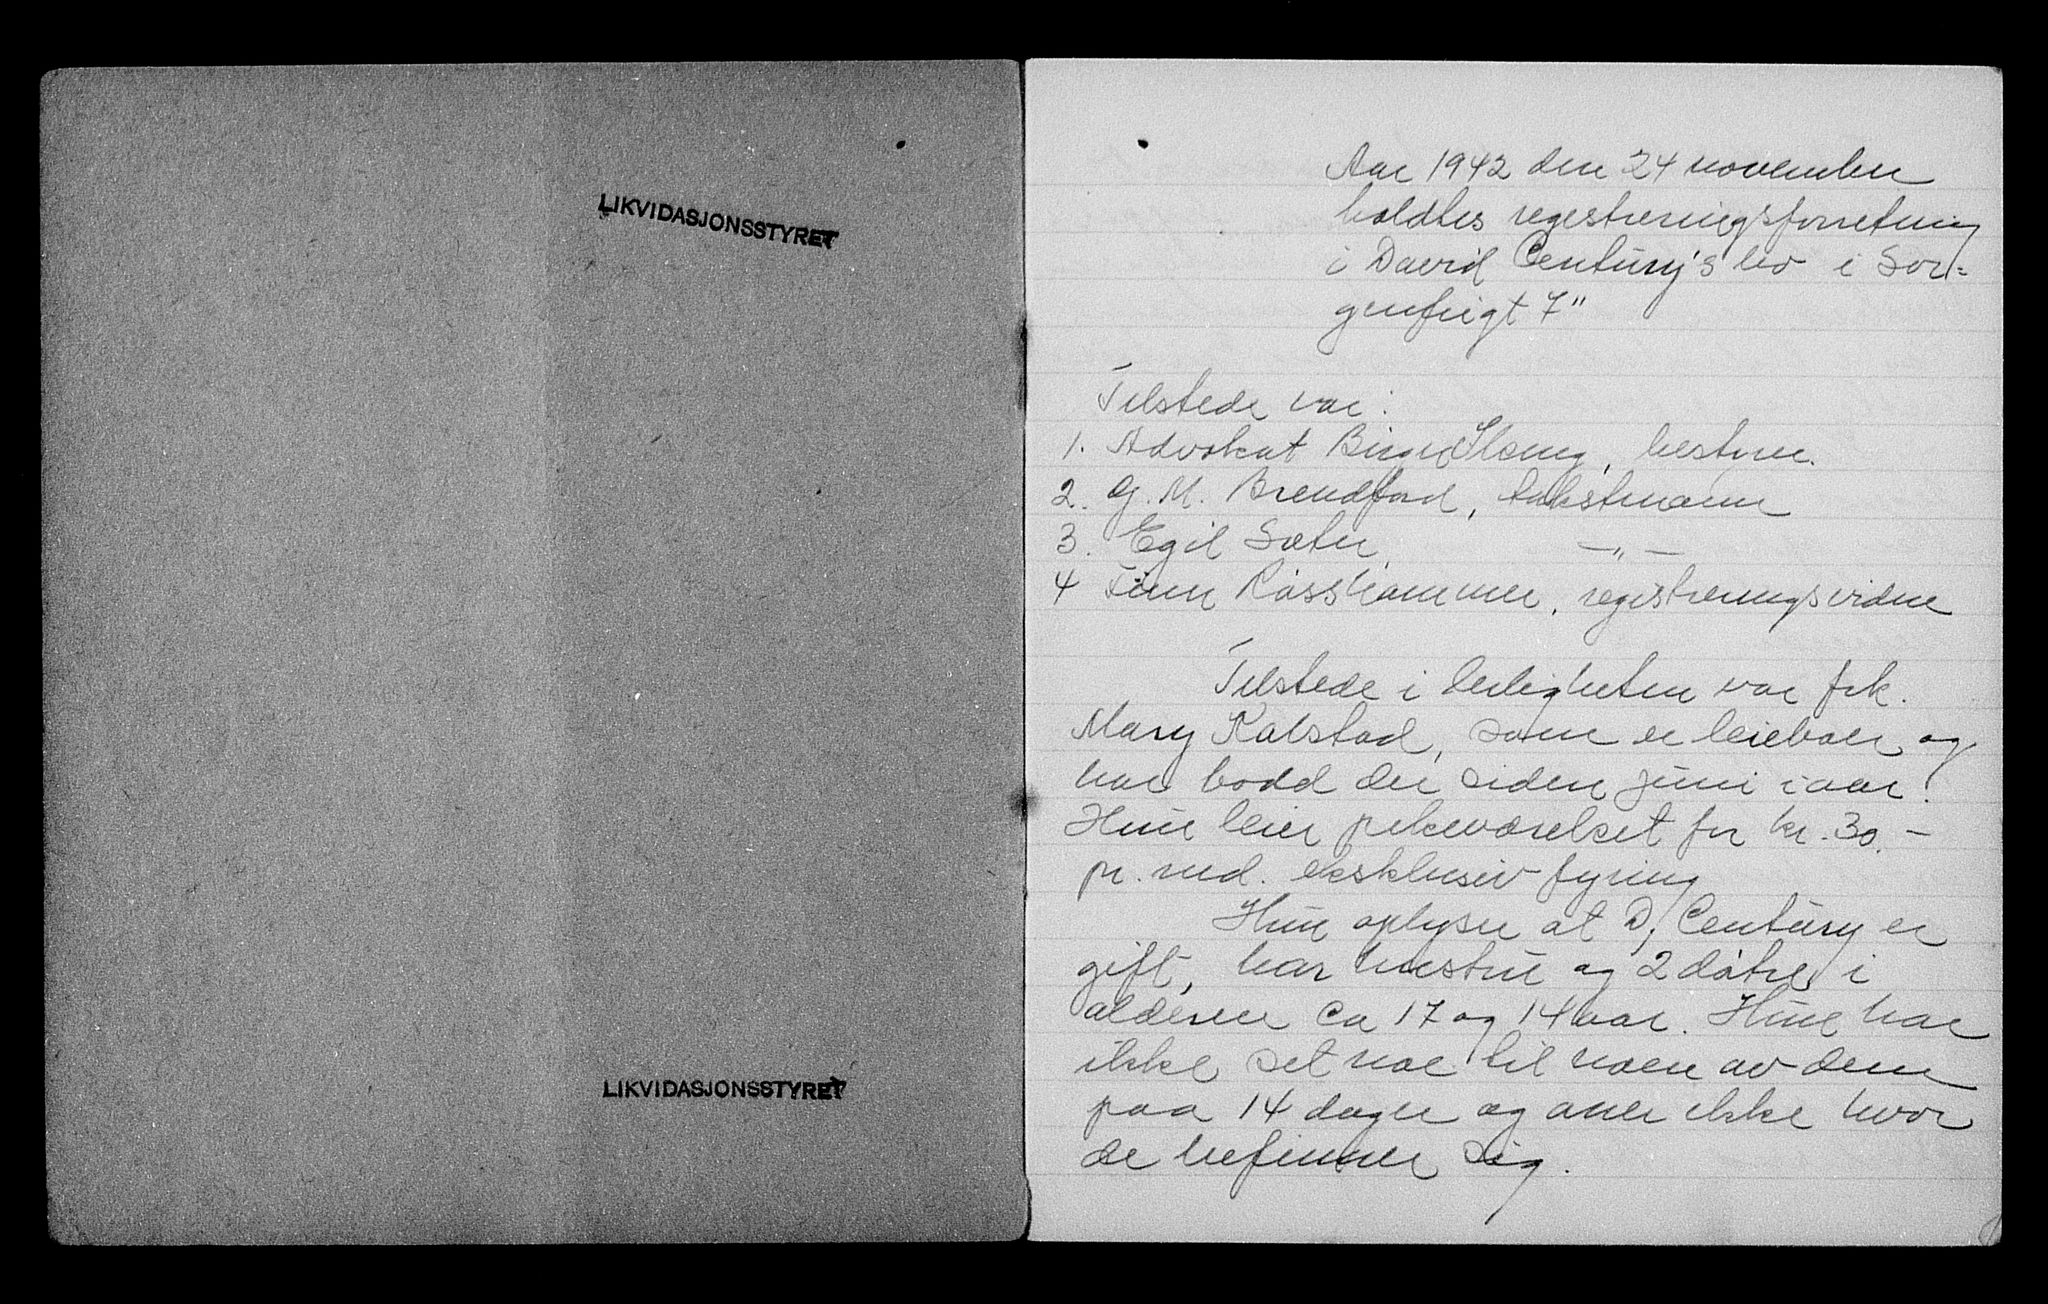 LIKVIDASJONSSTYRET
LIKVIDASJONSSTYRET
Aar 1942 den 24 november
holdtes regestreringsforretning
i David Century's bo i Sor-
genfrigt 7"
Tilstede var:
1. Advokat Birger, bestyrer.
2. G. M. Brendford, takstmann
3. Egil Sæter —"—
4 Finn Rosshammer, registreringsvidne
Tilstede i leiligheten var frk.
Mary Kalstad, som er leieboer og
har bodd der siden juni i aar.
Hun leier pikeværelset for kr. 30.-
pr. md. eksklusiv fyring
Hun oplyser at D. Century er
gift, har hustru og 2 døtre i
alderen ca 17 og 14 aar. Hun har
ikke set noe til noen av dem
paa 14 dager og aner ikke hvor
de befinner sig.